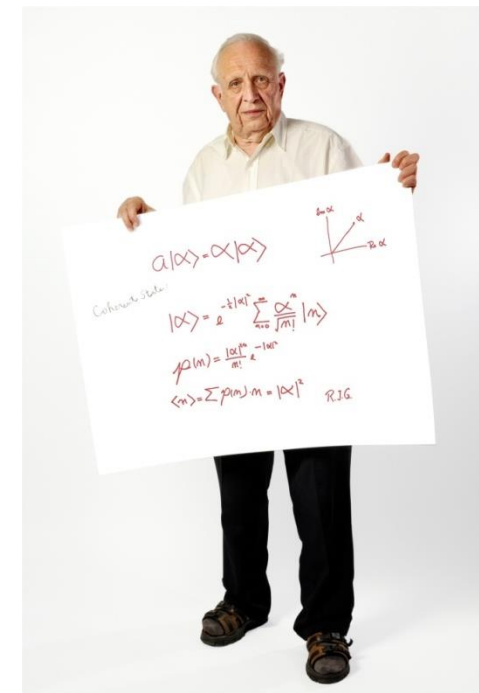 Im α
α
a|α⟩=α|α⟩
Re α
Coherent State:
|α⟩ = e^{-½|α|²} ∑_{n=0}^{∞} αⁿ/√n! |n⟩
p(n) = |α|²ⁿ/n! e^{-|α|²}
⟨n⟩=∑p(n)·n = |α|² R.J.G.